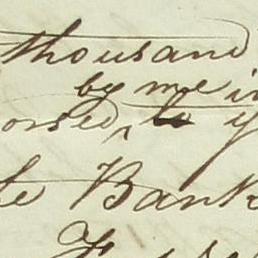 thousand
by me in
orsed, to y
le Bank